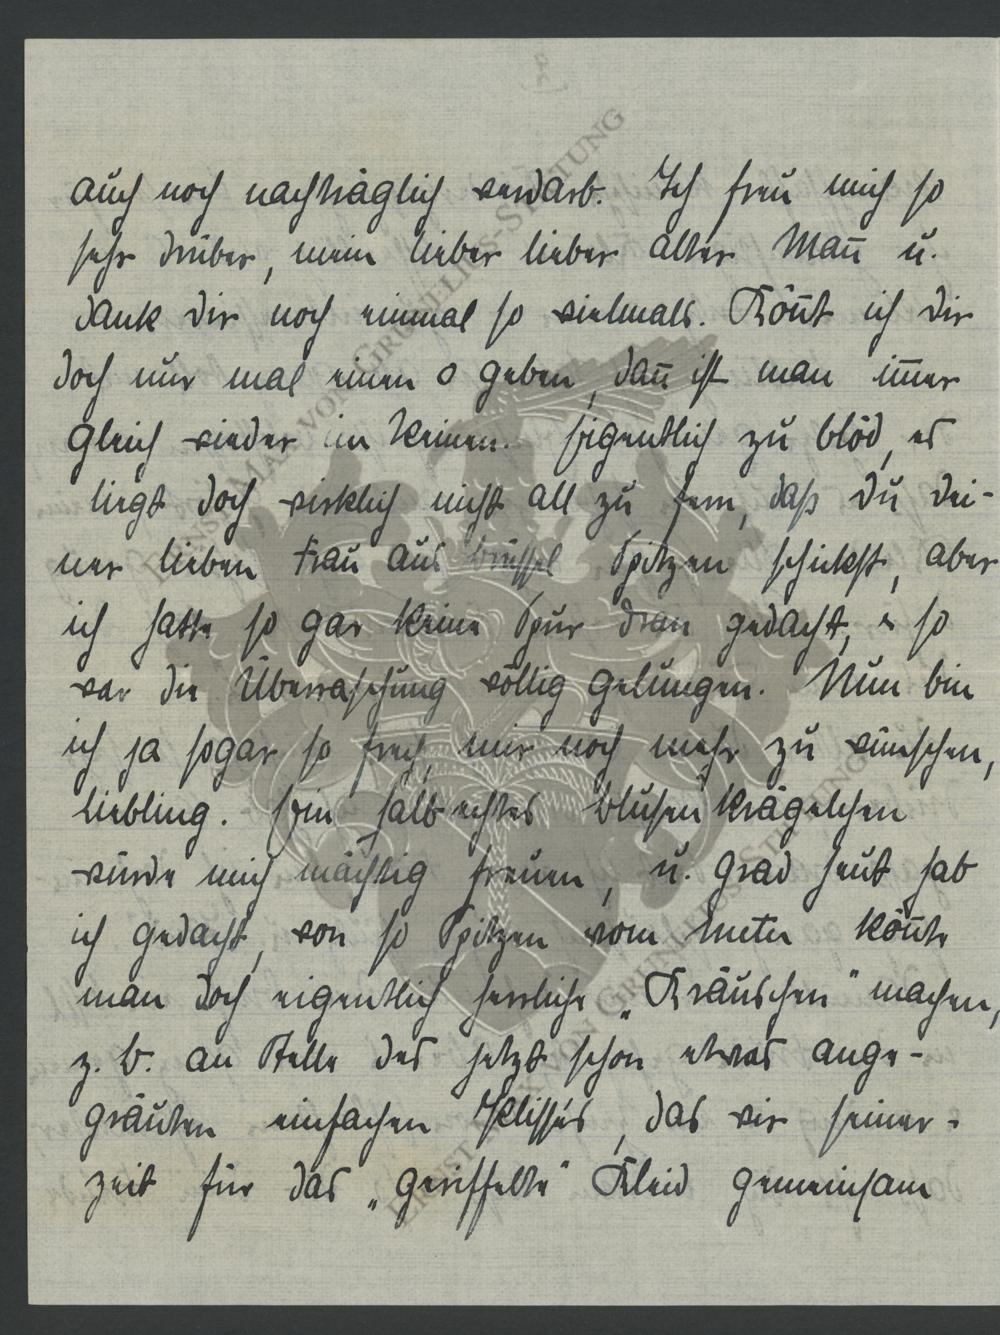 auch noch nachträglich verdarb. Ich freu mich so
sehr drüber, mein lieber lieber alter Mañ u.
dank dir noch einmal so vielmals. Köñt ich dir
doch nur mal einen o geben, dañ ist man im̃er
gleich wieder im Reinen. Eigentlich zu blöd, es
liegt doch wirklich nicht all zu fern, daß du dei-
ner lieben Frau aus Brüssel Spitzen schickst, aber
ich hatte so gar keine Spur dran gedacht, & so
war die Überraschung völlig gelungen. Nun bin
ich ja sogar so frech, mir noch mehr zu wünschen,
Liebling. Ein halb echtes Blusenkrägelchen
würde mich mächtig freuen, u. grad heut hab
ich gedacht, von so Spitzen vom Meter köñte
man doch eigentlich herrliche „Kräuschen" machen,
z. B. an Stelle des jetzt schon etwas ange-
grauten einfachen Plissés, das wir seiner-
zeit für das „geriffelte" Kleid gemeinsam
ERNST MAX VON GRUNELIUS-STIFTUNG
ERNST MAX VON GRUNELIUS-STIFTUNG